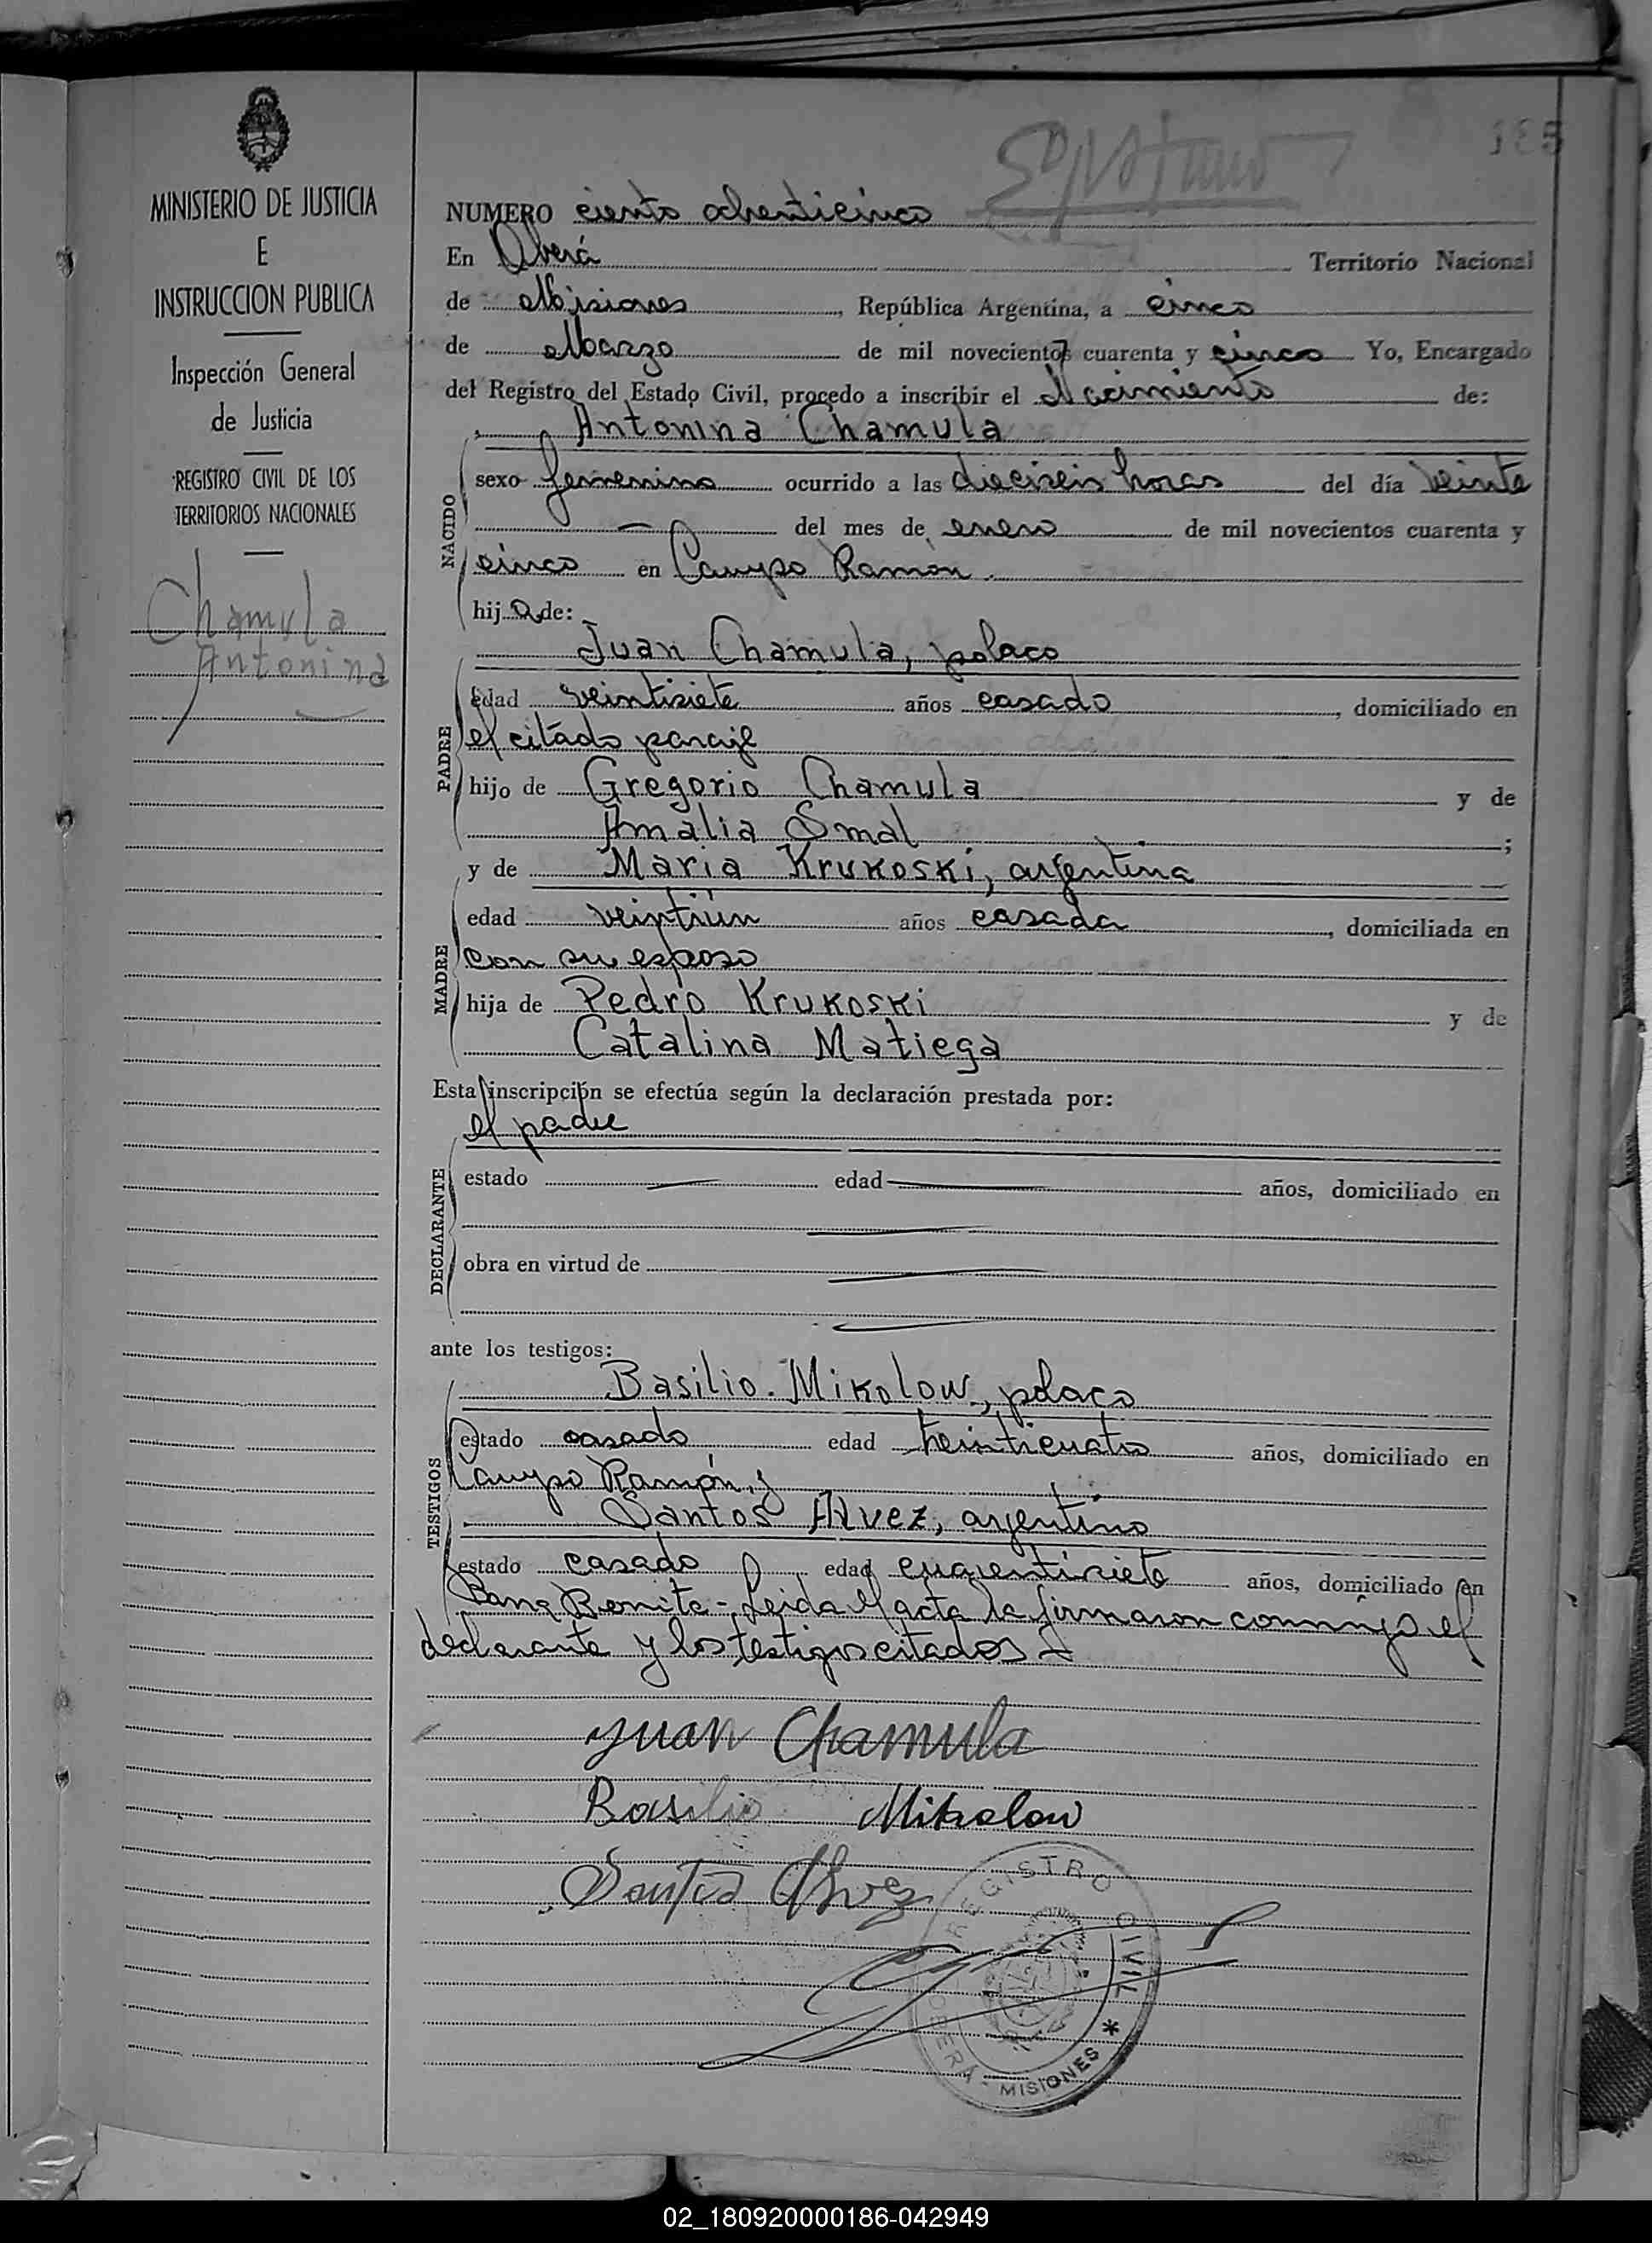 185
MINISTERIO DE JUSTICIA
E
INSTRUCCION PUBLICA
Inspección General
de Justicia
REGISTRO CIVIL DE LOS
TERRITORIOS NACIONALES
Chamula
Antonina
NUMERO ciento ochenticinco
En Oberá Territorio Nacional
de Misiones, República Argentina, a cinco
de Marzo de mil novecientos cuarenta y cinco Yo, Encargado
del Registro del Estado Civil, procedo a inscribir el Nacimiento de:
Antonina Chamula
NACIDO
sexo femenino ocurrido a las dieciseis horas del día veinte
— del mes de enero de mil novecientos cuarenta y
cinco en Campo Ramón.
hija de:
Juan Chamula, polaco
PADRE
edad veintisiete años casado, domiciliado en
el citado paraje
hijo de Gregorio Chamula y de
Amalia Smal;
y de Maria Krukoski, argentina
MADRE
edad veintiún años casada, domiciliada en
con su esposo
hija de Pedro Krukoski y de
Catalina Matiega
Esta inscripción se efectúa según la declaración prestada por:
el padre
DECLARANTE
estado — edad — años, domiciliado en
—
obra en virtud de —
—
ante los testigos:
Basilio Mikolow, polaco
TESTIGOS
estado casado edad treinticuatro años, domiciliado en
Campo Ramón, y
Santos Alvez, argentino
estado casado edad cuarentisiete años, domiciliado en
Bonita - Leída el acta la firmaron conmigo el
declarante y los testigos citados -
Juan Chamula
Basilio Mikolow
Santos Alvez
REGISTRO CIVIL * OBERA - MISIONES *
02_180920000186-042949